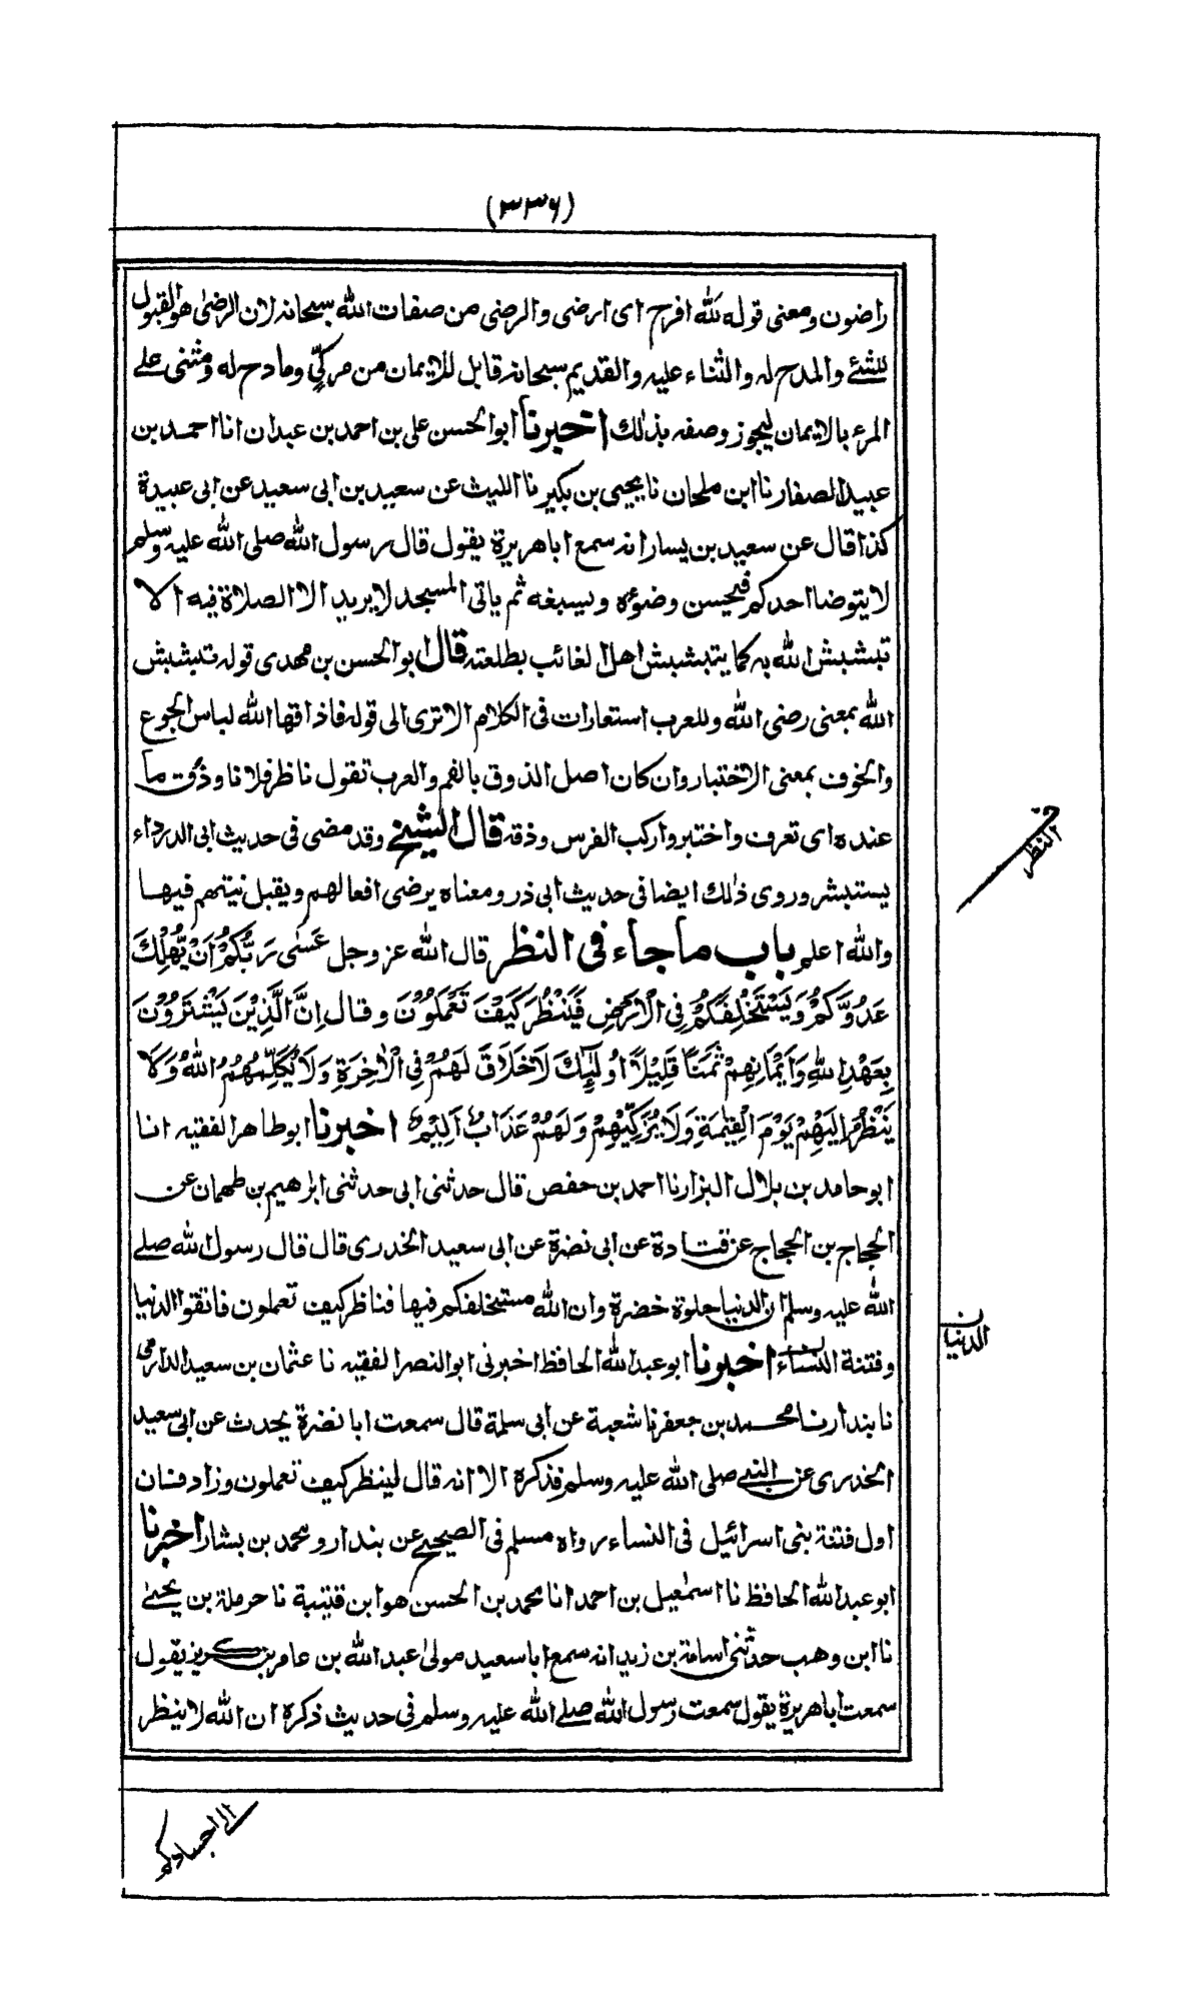 (٣٣٦)
راضون ومعنى قوله لله افرح اى ارضى والرضى من صفات الله سبحانه لان الرضى هو القبول
للشئ والمدح له والثناء عليه والقديم سبحانه قابل للايمان من مزكّى ومادح له ومثنى على
المرء بالايمان ليجوز وصفه بذلك اخبرنا ابوالحسن على بن احمد بن عبدان انا احمد بن
عبيد الصفار نا ابن ملحان نا يحيى بن بكير نا الليث عن سعيد بن ابى سعيد عن ابى عبيدة
كذا قال عن سعيد بن يسار انه سمع ابا هريرة يقول قال رسول الله صلى الله عليه وسلم
لا يتوضا احدكم فيحسن وضوءه ويسبغه ثم ياتى المسجد لا يريد الا الصلاة فيه الا
تبشبش الله به كما يتبشبش اهل الغائب بطلعته قال ابوالحسن بن مهدى قوله تبشبش
الله بمعنى رضى الله وللعرب استعارات فى الكلام الا ترى الى قوله فاذاقها الله لباس الجوع
والخوف بمعنى الاختبار وان كان اصل الذوق بالفم والعرب تقول ناظر فلانا وذق ما
عنده اى تعرف واختبر واركب الفرس وذقه قال الشيخ وقد مضى فى حديث ابى الدرداء
يستبشر وروى ذلك ايضا فى حديث ابى ذر ومعناه يرضى افعالهم ويقبل نيتهم فيها
والله اعلم باب ما جاء فى النظر قال الله عز وجل عَسٰى رَبُّكُمْ اَنْ يُّهْلِكَ
عَدُوَّكُمْ وَيَسْتَخْلِفَكُمْ فِى الْاَرْضِ فَيَنْظُرَ كَيْفَ تَعْمَلُوْنَ وقال اِنَّ الَّذِيْنَ يَشْتَرُوْنَ
بِعَهْدِ اللهِ وَاَيْمَانِهِمْ ثَمَنًا قَلِيْلًا اُولٰٓئِكَ لَاخَلَاقَ لَهُمْ فِى الْاٰخِرَةِ وَلَا يُكَلِّمُهُمُ اللهُ وَلَا
يَنْظُرُ اِلَيْهِمْ يَوْمَ الْقِيٰمَةِ وَلَا يُزَكِّيْهِمْ وَلَهُمْ عَذَابٌ اَلِيْمٌ اخبرنا ابوطاهر الفقيه انا
ابوحامد بن بلال البزار نا احمد بن حفص قال حدثنى ابى حدثنى ابرهيم بن طهمان عن
الحجاج بن الحجاج عن قتادة عن ابى نضرة عن ابى سعيد الخدرى قال قال رسول الله صلى
الله عليه وسلم ان الدنيا حلوة خضرة وان الله مستخلفكم فيها فناظر كيف تعملون فاتقوا الدنيا
وفتنة النساء اخبرنا ابوعبدالله الحافظ اخبرنى ابوالنصر الفقيه نا عثمان بن سعيد الدارمى
نا بندار نا محمد بن جعفر نا شعبة عن ابى سلمة قال سمعت ابا نضرة يحدث عن ابى سعيد
الخدرى عن النبى صلى الله عليه وسلم فذكره الا انه قال لينظر كيف تعملون وزاد فان
اول فتنة بنى اسرائيل فى النساء رواه مسلم فى الصحيح عن بندار ومحمد بن بشار اخبرنا
ابوعبدالله الحافظ نا اسمعيل بن احمد انا محمد بن الحسن هو ابن قتيبة نا حرملة بن يحيى
نا ابن وهب حدثنى اسامة بن زيد انه سمع ابا سعيد مولى عبدالله بن عامر بن كريز يقول
سمعت ابا هريرة يقول سمعت رسول الله صلى الله عليه وسلم فى حديث ذكره ان الله لا ينظر
النظر
ان الدنيا
الى اجسادكم